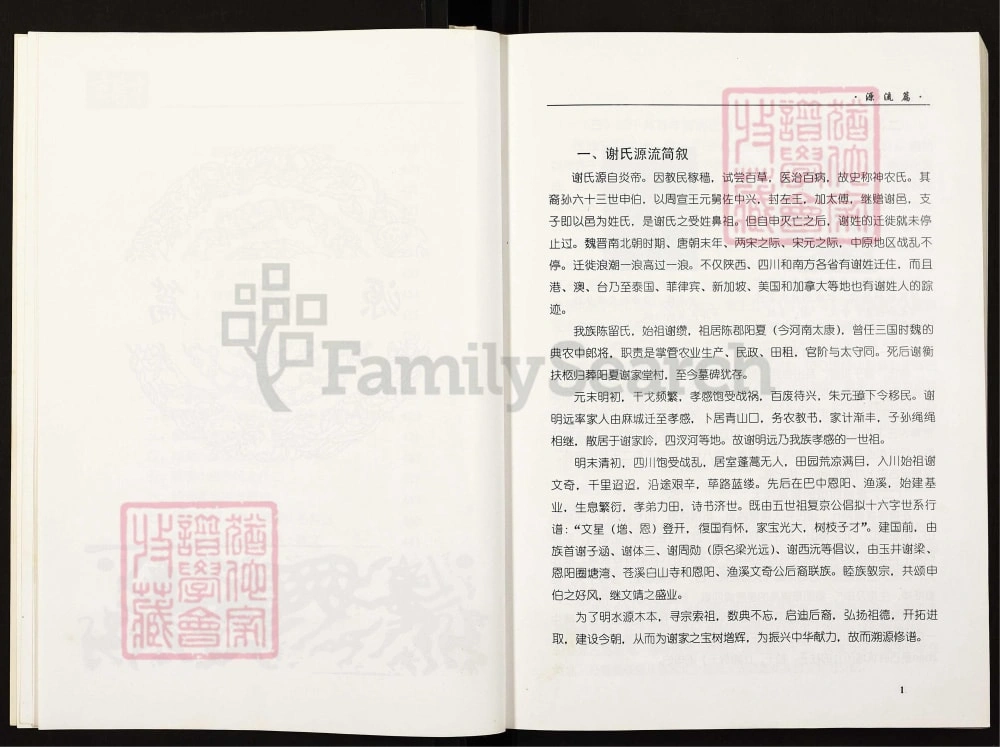 ·源流篇·
一、谢氏源流简叙
谢氏源自炎帝。因教民稼穑，试尝百草，医治百病，故史称神农氏。其
裔孙六十三世申伯，以周宣王元舅佐中兴，封左王，加太傅，继赐谢邑，支
子即以邑为姓氏，是谢氏之受姓鼻祖。但自申灭亡之后，谢姓的迁徙就未停
止过。魏晋南北朝时期、唐朝末年、两宋之际、宋元之际，中原地区战乱不
停。迁徙浪潮一浪高过一浪。不仅陕西、四川和南方各省有谢姓迁住，而且
港、澳、台乃至泰国、菲律宾、新加坡、美国和加拿大等地也有谢姓人的踪
迹。
我族陈留氏，始祖谢缵，祖居陈郡阳夏（今河南太康），曾任三国时魏的
典农中郎将，职责是掌管农业生产、民政、田租，官阶与太守同。死后谢衡
扶柩归葬阳夏谢家堂村，至今墓碑犹存。
元末明初，干戈频繁，孝感饱受战祸，百废待兴，朱元璋下令移民。谢
明远率家人由麻城迁至孝感，卜居青山口，务农教书，家计渐丰，子孙绳绳
相继，散居于谢家岭，四汊河等地。故谢明远乃我族孝感的一世祖。
明末清初，四川饱受战乱，居室蓬蒿无人，田园荒凉满目，入川始祖谢
文奇，千里迢迢，沿途艰辛，筚路蓝缕。先后在巴中恩阳、渔溪，始建基
业，生息繁衍，孝弟力田，诗书济世。既由五世祖复京公倡拟十六字世系行
谱：“文星（增、恩）登开，復国有怀，家宝光大，树枝子才”。建国前，由
族首谢子涵、谢体三、谢周勋（原名梁光远）、谢西沅等倡议，由玉井谢梁、
恩阳圈塘湾、苍溪白山寺和恩阳、渔溪文奇公后裔联族。睦族敦宗，共颂申
伯之好风，继文靖之盛业。
为了明水源木本，寻宗索祖，数典不忘，启迪后裔，弘扬祖德，开拓进
取，建设今朝，从而为谢家之宝树增辉，为振兴中华献力，故而溯源修谱。
1
FamilySearch